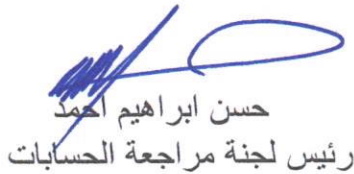 حسن ابراهيم احمد
رئيس لجنة مراجعة الحسابات